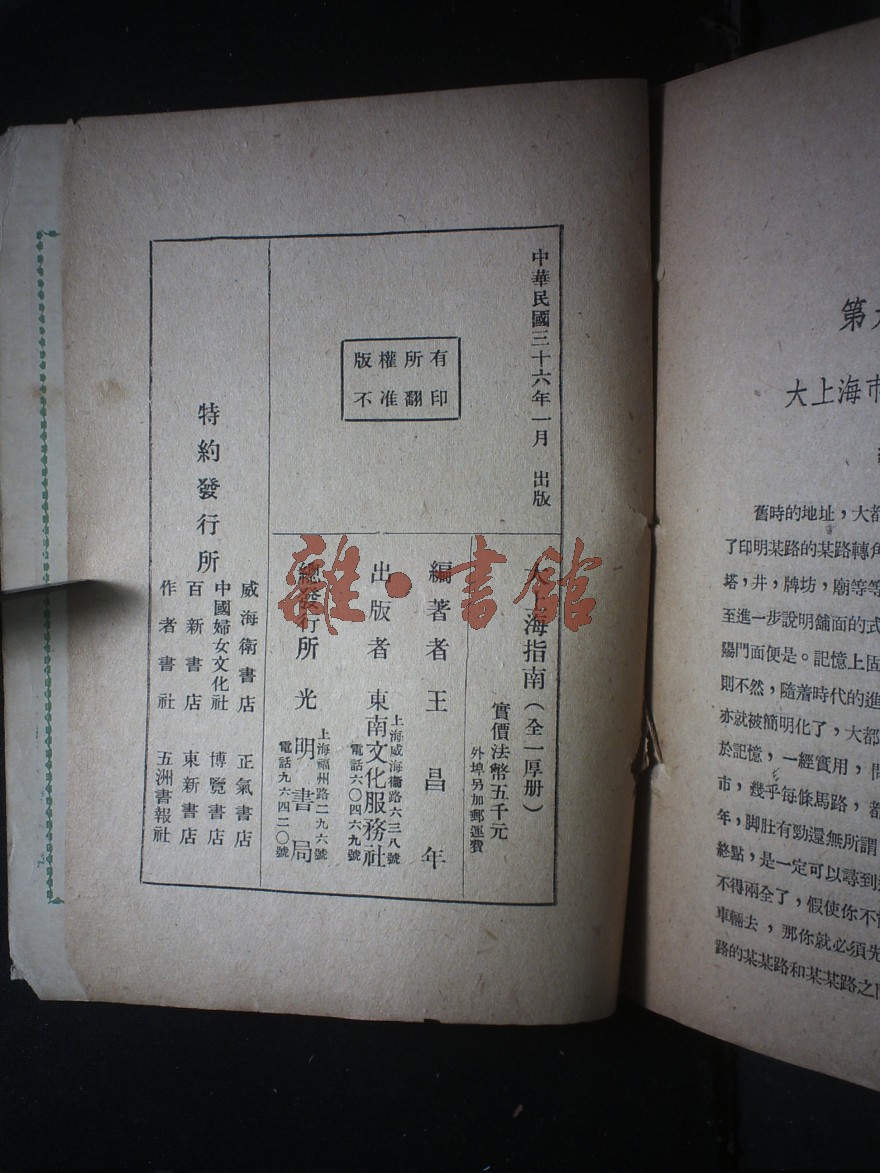 中華民國三十六年一月　出版
版權所有
不准翻印
大上海指南（全一厚册）
實價法幣五千元
外埠另加郵運費
編著者 王昌年
出版者 東南文化服務社
上海威海衞路六三八號
電話六〇四六九號
總發行所 光明書局
上海福州路二九六號
電話九六四二〇號
特約發行所
威海衛書店 正氣書店
中國婦女文化社 博覽書店
百新書店 東新書店
作者書社 五洲書報社
雜·書館
第
大上海市
舊時的地址，大都
了印明某路的某路轉角
塔，井，牌坊，廟等等
至進一步說明舖面的式
陽門面便是。記憶上固
則不然，隨着時代的進
亦就被簡明化了，大都
於記憶，一經實用，
市，幾乎每條馬路，都
年，脚肚有勁還無所謂
終點，是一定可以尋到
不得兩全了，假使你不
車輛去，那你就必須先
路的某某路和某某路之